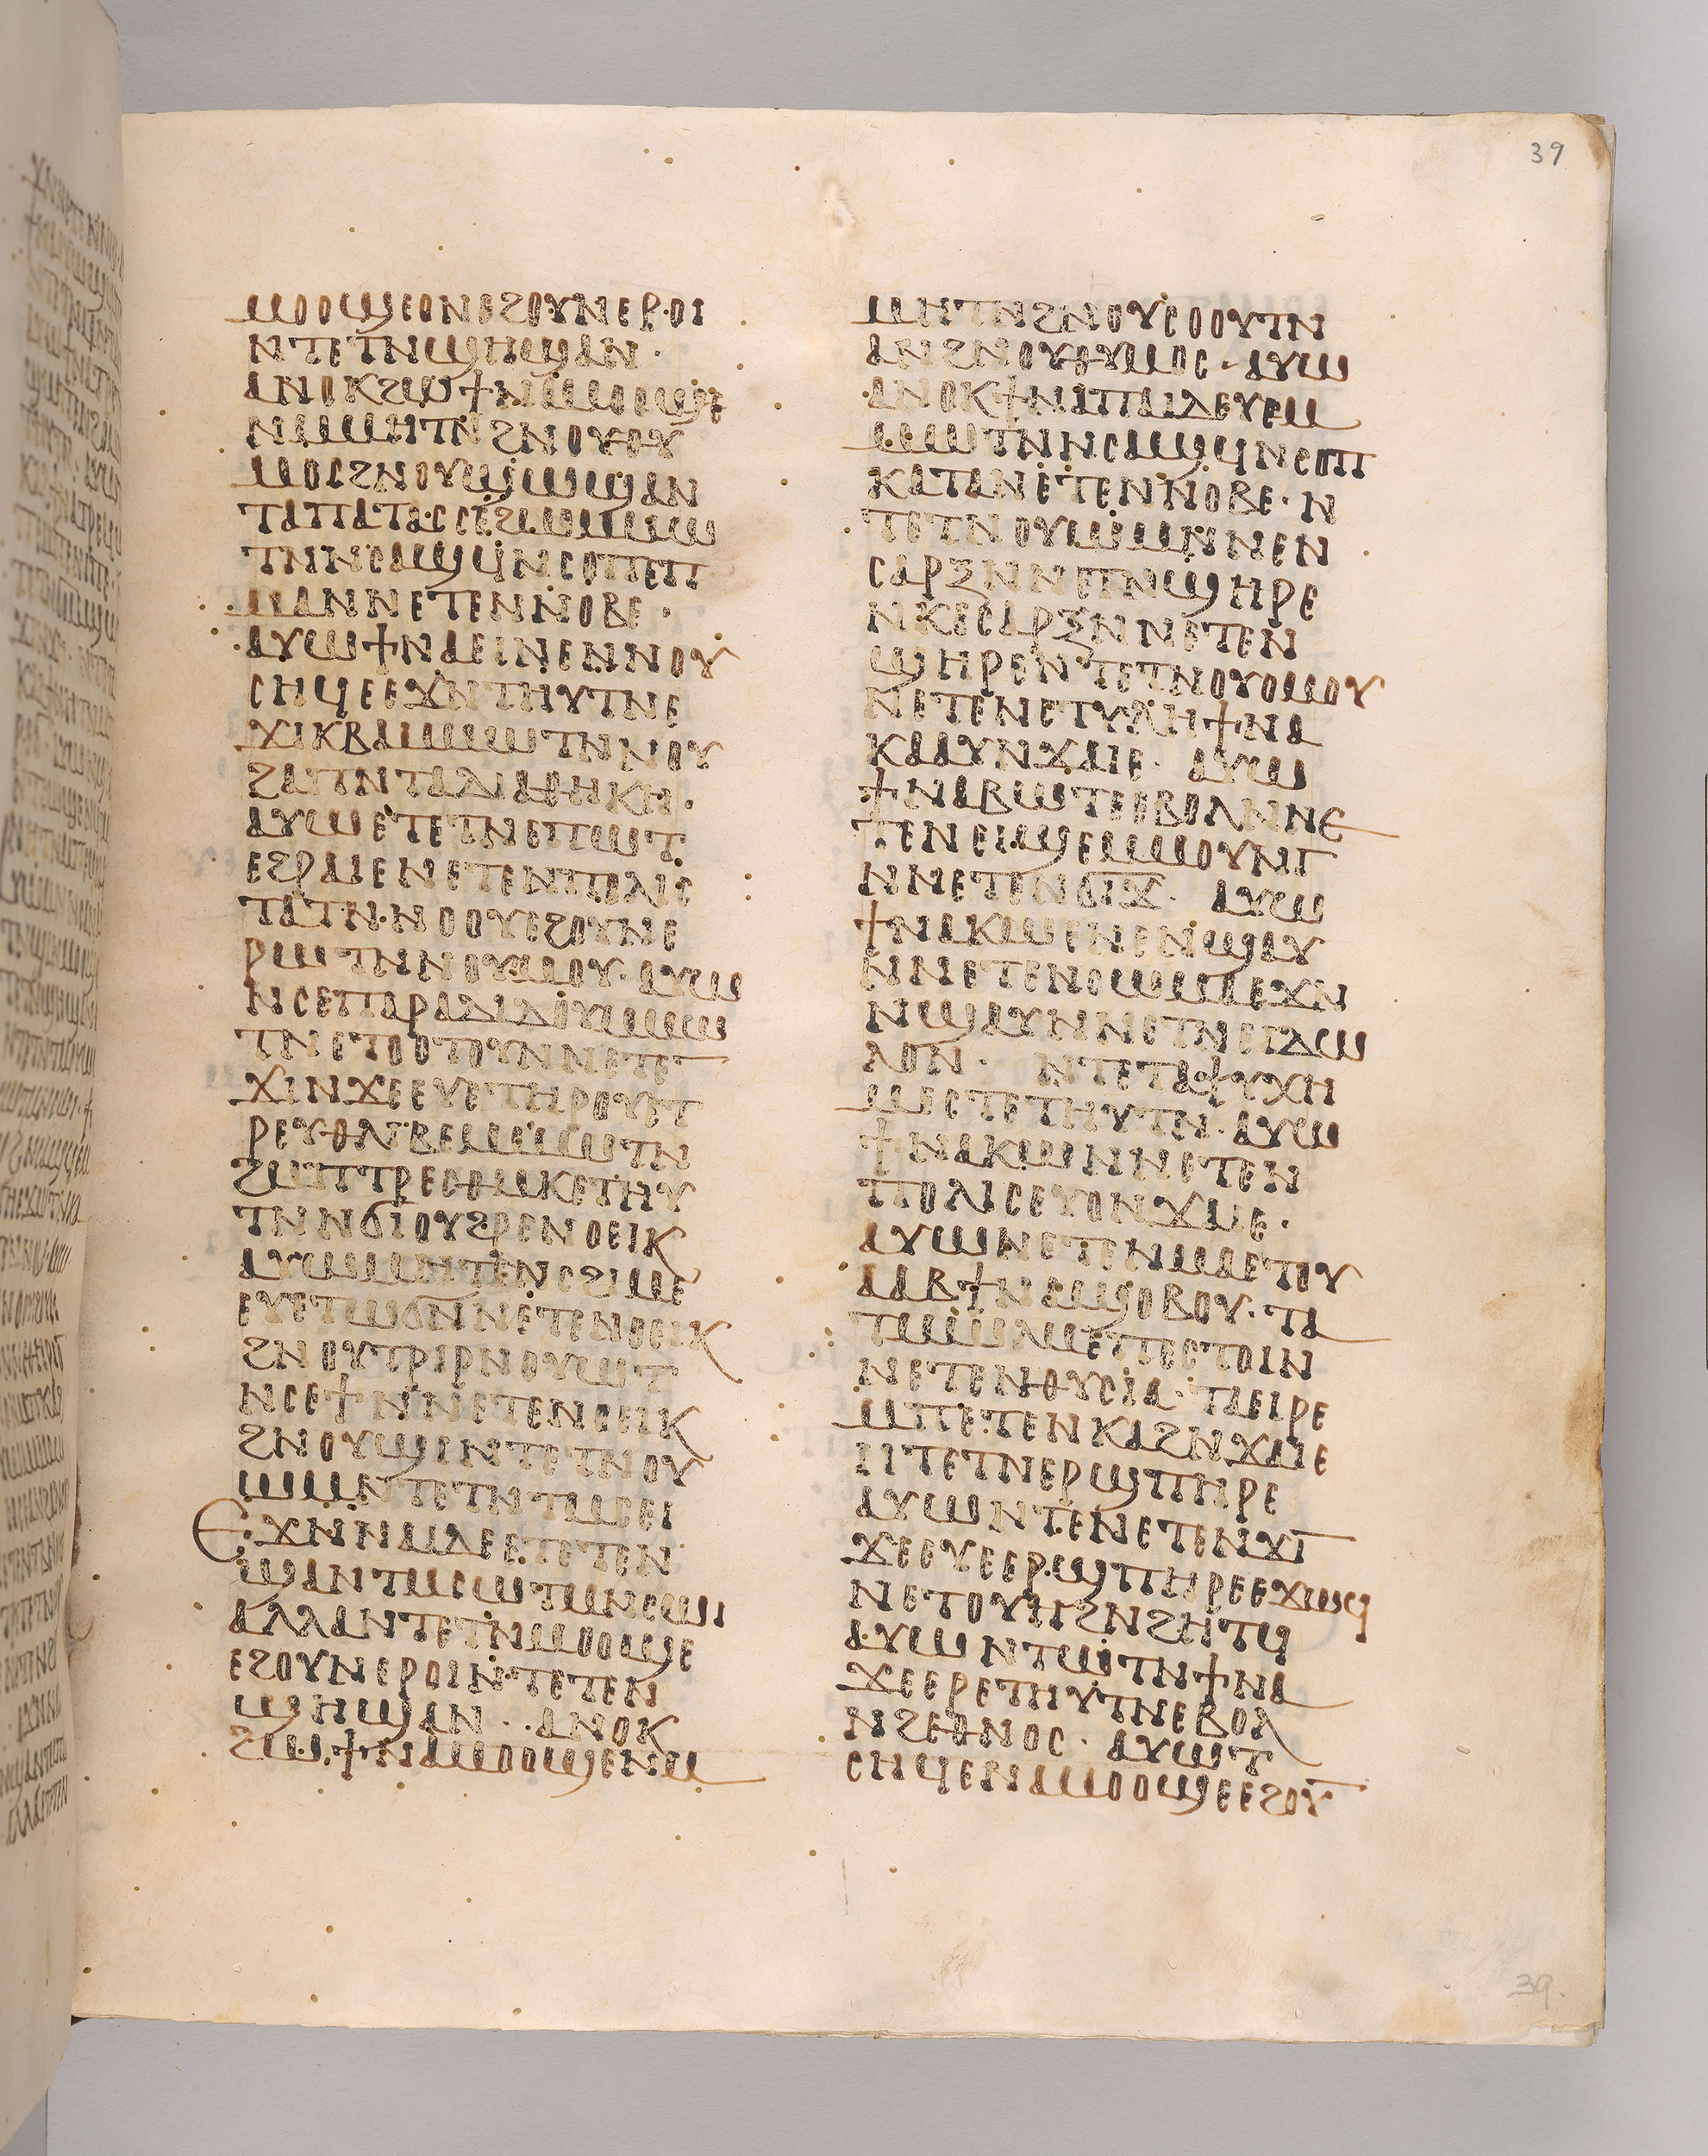 39
ⲙⲟⲟϣⲉⲟⲛⲉϩⲟⲩⲛⲉⲣⲟⲓ
ⲛⲧⲉⲧⲛϣⲏϣⲁⲛ·
ⲁⲛⲟⲕϩⲱϯⲛⲁⲙⲟⲟϣⲉ
ⲛⲙⲙⲏⲧⲛϩⲛⲟⲩⲑⲩ
ⲙⲟⲥϩⲛⲟⲩϣⲱϣⲁⲛ
ⲧⲁⲡⲁⲧⲁⲥⲥⲉϩⲙⲙⲱ
ⲧⲛⲛⲥⲁϣϥⲛⲥⲟⲡⲉⲡ
ⲙⲁⲛⲛⲉⲧⲉⲛⲛⲟⲃⲉ·
ⲁⲩⲱϯⲛⲁⲉⲓⲛⲉⲛⲛⲟⲩ
ⲥⲏϥⲉⲉϫⲛⲧⲏⲩⲧⲛⲉ
ϫⲓⲕⲃⲁⲙⲙⲱⲧⲛⲛⲟⲩ
ϩⲁⲡⲛⲧⲁⲇⲓⲁⲑⲏⲕⲏ·
ⲁⲩⲱⲉⲧⲉⲧⲛⲉⲡⲱⲧ
ⲉϩⲣⲁⲓⲉⲛⲉⲧⲉⲛⲡⲟⲗⲓⲥ
ⲧⲁⲧⲛⲛⲟⲟⲩⲉϩⲟⲩⲛⲉ
ⲣⲱⲧⲛⲛⲟⲩⲙⲟⲩ·ⲁⲩⲱ
ⲛⲥⲉⲡⲁⲣⲁⲇⲓⲇⲟⲩⲙⲙⲱ
ⲧⲛⲉⲧⲟⲟⲧⲟⲩⲛⲛⲉⲧⲛ
ϫⲓⲛϫⲉⲉⲩⲉⲧⲏⲣⲟⲩⲉⲧ
ⲣⲉⲩⲑⲗⲓⲃⲉⲙⲙⲱⲧⲛ
ϩⲙⲡⲧⲣⲉⲥⲑⲙⲕⲉⲧⲏⲩ
ⲧⲛⲛϭⲓⲟⲩϩⲣⲉⲛⲟⲉⲓⲕ
ⲁⲩⲱⲙⲏⲧⲉⲛⲥϩⲓⲙⲉ
ⲉⲩⲉⲧⲱϭⲛⲛⲉⲧⲉⲛⲟⲉⲓⲕ
ϩⲛⲟⲩⲧⲣⲓⲣⲛⲟⲩⲱⲧ
ⲛⲥⲉϯⲛⲛⲉⲧⲉⲛⲟⲉⲓⲕ
ϩⲛⲟⲩϣⲓⲛⲧⲉⲧⲛⲟⲩ
ⲱⲙⲛⲧⲉⲧⲛⲧⲙⲥⲉⲓ
ⲉϫⲛⲛⲁⲓⲇⲉⲉⲧⲉⲧⲉⲛ
ϣⲁⲛⲧⲙⲥⲱⲧⲙⲛⲥⲱⲓ
ⲁⲗⲗⲁⲛⲧⲉⲧⲛⲙⲟⲟϣⲉ
ⲉϩⲟⲩⲛⲉⲣⲟⲓⲛⲧⲉⲧⲉⲛ
ϣⲏϣⲁⲛ··ⲁⲛⲟⲕ
ϩⲱϯⲛⲁⲙⲟⲟϣⲉⲛⲙ
ⲙⲏⲧⲛϩⲛⲟⲩⲥⲟⲟⲩⲧⲛ
ⲁⲛϩⲛⲟⲩⲑⲩⲙⲟⲥ·ⲁⲩⲱ
ⲁⲛⲟⲕϯⲛⲁⲡⲁⲓⲇⲉⲩⲉⲙ
ⲙⲱⲧⲛⲛⲥⲁϣϥⲛⲥⲟⲡ
ⲕⲁⲧⲁⲛⲉⲧⲉⲛⲛⲟⲃⲉ·ⲛ
ⲧⲉⲧⲛⲟⲩⲱⲙⲛⲛⲉⲛ
ⲥⲁⲣⲝⲛⲛⲉⲧⲛϣⲏⲣⲉ
ⲛⲕⲉⲥⲁⲣⲝⲛⲛⲉⲧⲉⲛ
ϣⲏⲣⲉⲛⲧⲉⲧⲛⲟⲩⲟⲙⲟⲩ
ⲛⲉⲧⲉⲛⲉⲧⲩⲗⲏϯⲛⲁ
ⲕⲁⲁⲩⲛϫⲁⲓⲉ·ⲁⲩⲱ
ϯⲛⲁⲃⲱⲧⲉⲉⲃⲟⲗⲛⲛⲉ
ⲧⲉⲛⲉⲓϣⲉⲙⲙⲟⲩⲛⲅ
ⲛⲛⲉⲧⲉⲛϭⲓϫ·ⲁⲩⲱ
ϯⲛⲁⲕⲱⲉⲛⲉⲛϣⲁⲩ
ⲛⲛⲉⲧⲉⲛⲥⲱⲙⲁⲉϫⲛ
ⲛϣⲁⲩⲛⲛⲉⲧⲛⲉⲓⲇⲱ
ⲗⲟⲛ·ⲛⲧⲉⲧⲁⲯⲩⲭⲏ
ⲙⲉⲥⲧⲉⲧⲏⲩⲧⲛ·ⲁⲩⲱ
ϯⲛⲁⲕⲱⲛⲛⲉⲧⲉⲛ
ⲡⲟⲗⲓⲥⲉⲩⲟⲛϫⲁⲓⲉ·
ⲁⲩⲱⲛⲉⲧⲉⲛⲙⲁⲉⲧⲟⲩ
ⲁⲁⲃϯⲛⲁϣⲟⲃⲟⲩ·ⲧⲁ
ⲧⲙϣⲱⲗⲙⲉⲡⲉⲥⲧⲟⲓⲛ
ⲛⲉⲧⲉⲛⲑⲩⲥⲓⲁ·ⲧⲁⲉⲓⲣⲉ
ⲙⲡⲉⲧⲉⲛⲕⲁϩⲛϫⲁⲓⲉ
ⲛⲧⲉⲧⲛⲉⲣϣⲡⲏⲣⲉ
ⲁⲩⲱⲛⲧⲉⲛⲉⲧⲉⲛϫⲓ
ϫⲉⲉⲩⲉⲉⲣϣⲡⲏⲣⲉⲉϫⲱϥ
ⲛⲉⲧⲟⲩⲏϩⲛϩⲏⲧϥ
ⲁⲩⲱⲛⲧⲱⲧⲛϯⲛⲁ
ϫⲉⲉⲣⲉⲧⲏⲩⲧⲛⲉⲃⲟⲗ
ⲛϩⲉⲑⲛⲟⲥ·ⲁⲩⲱⲧ
ⲥⲏϥⲉⲛⲁⲙⲟⲟϣⲉⲉϩⲟⲩ
39.